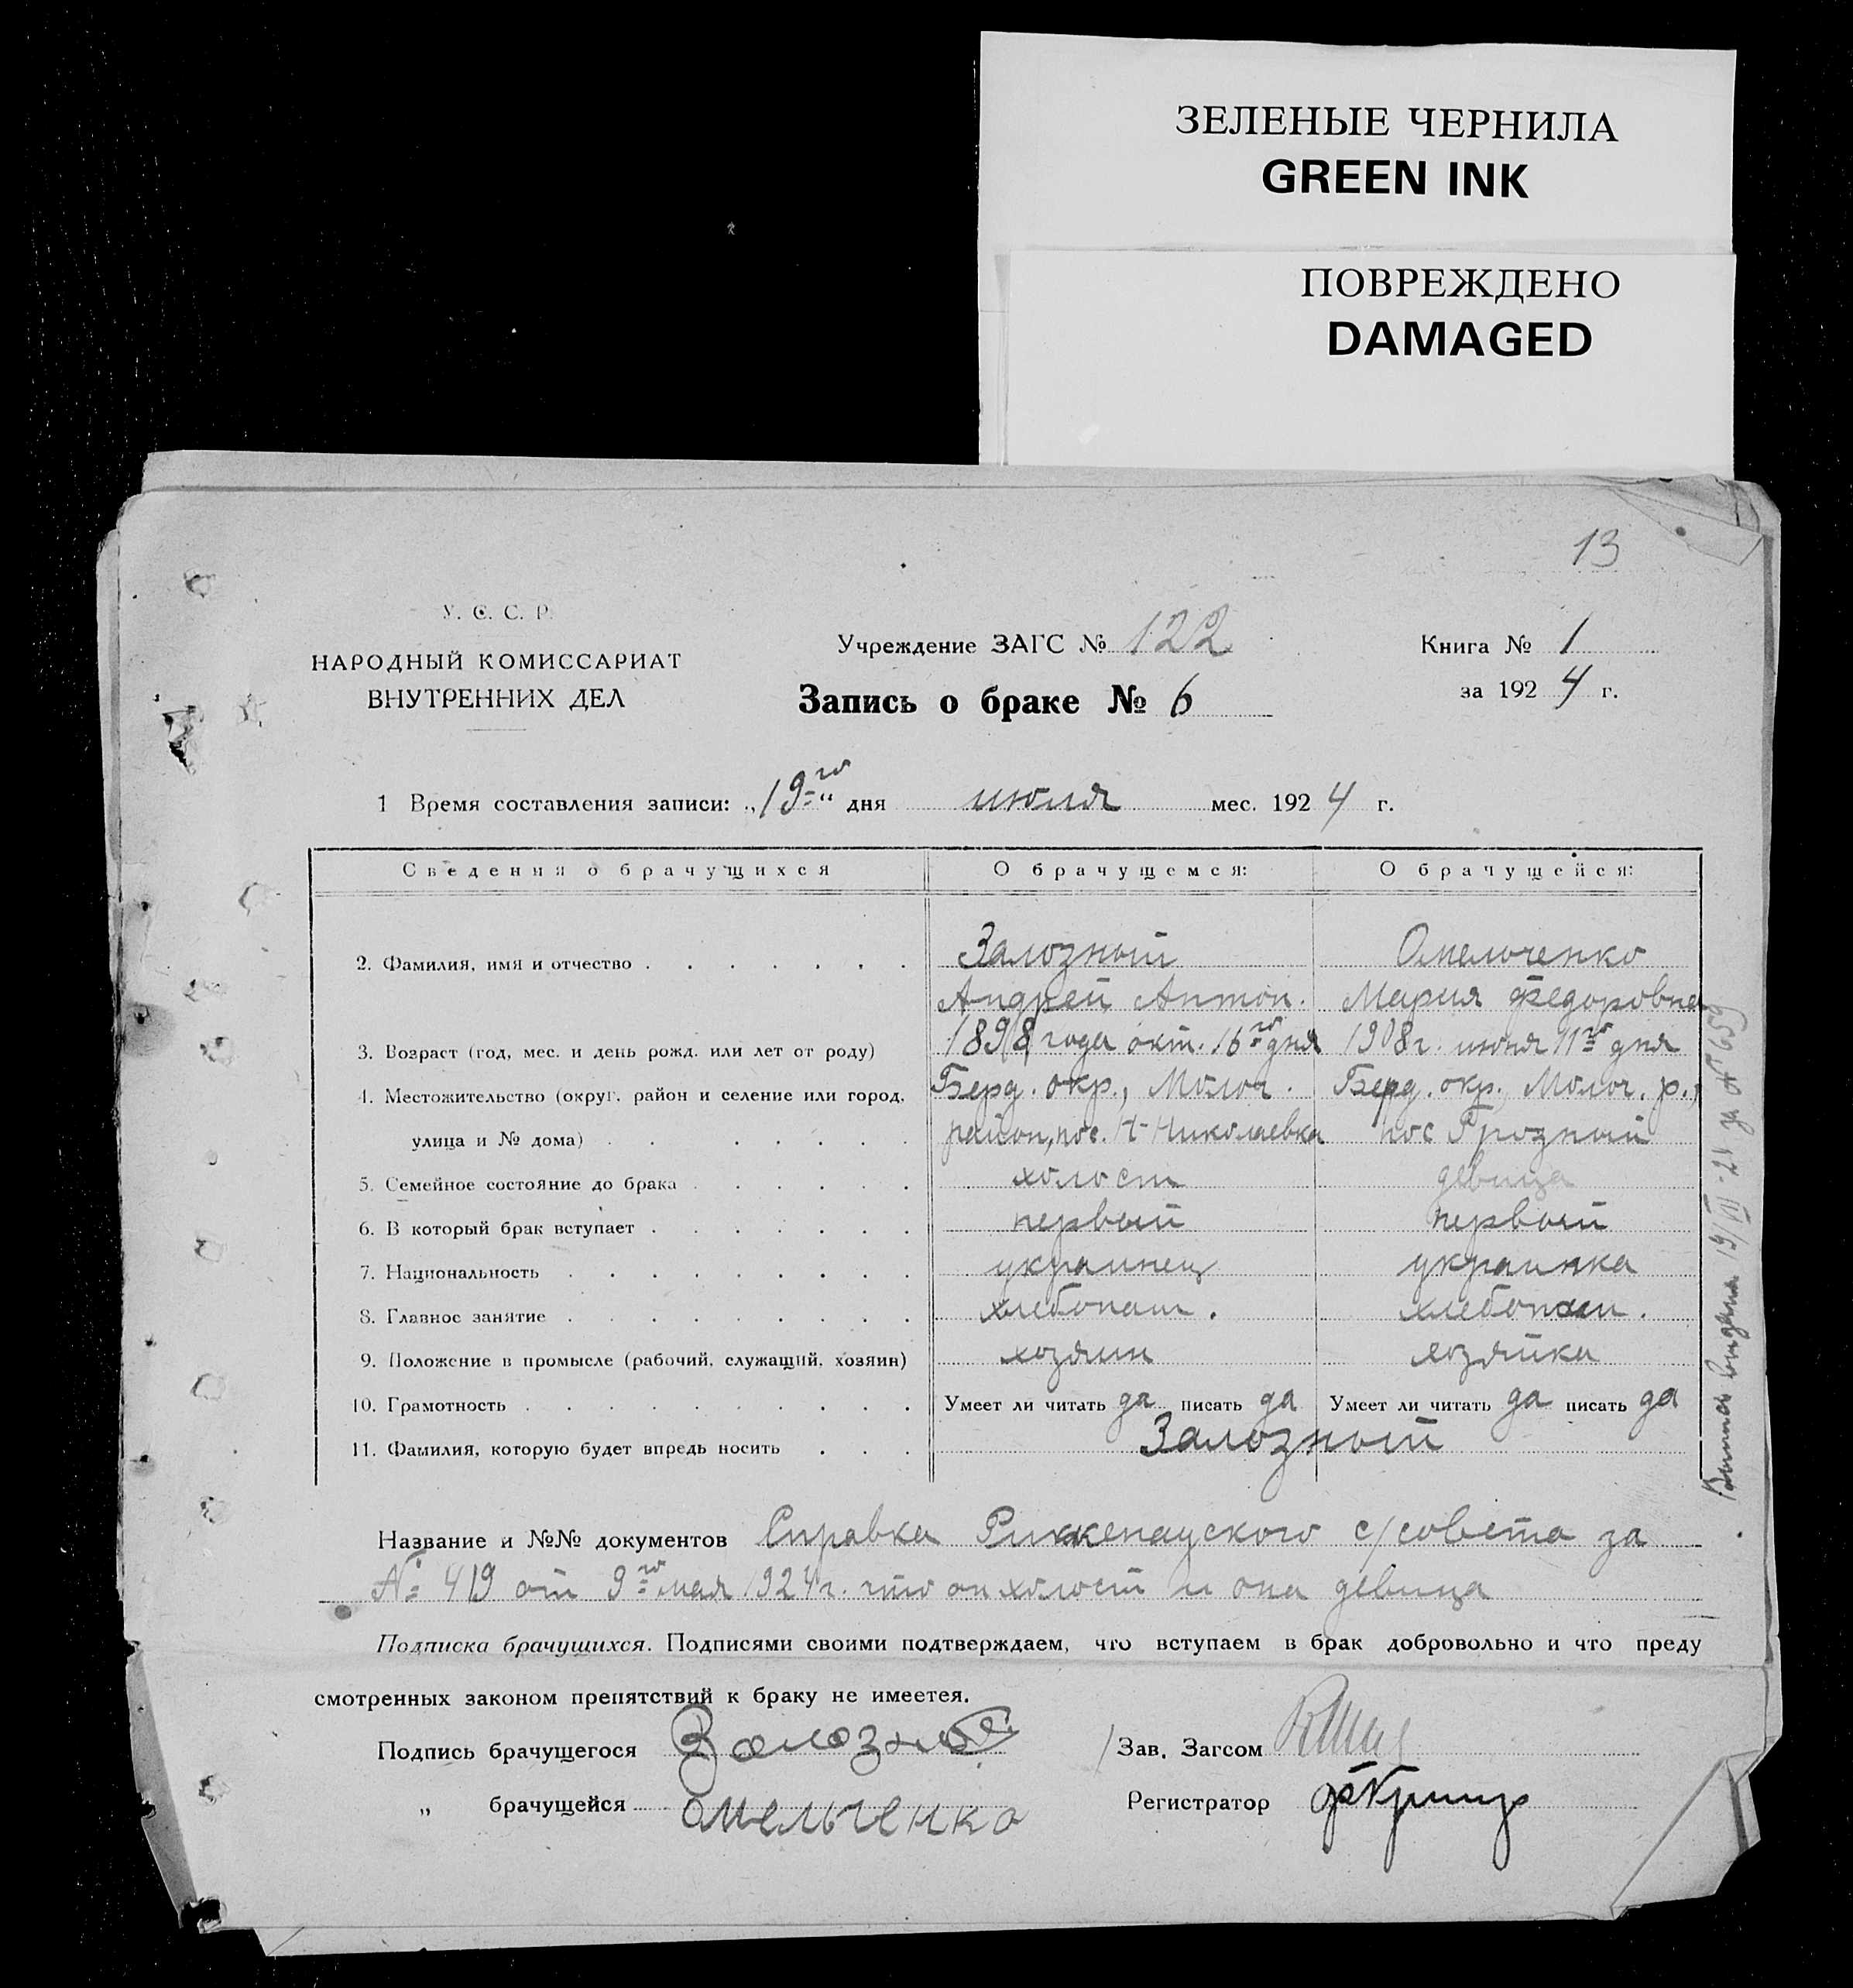 ЗЕЛЕНЫЕ ЧЕРНИЛА
GREEN INK
ПОВРЕЖДЕНО
DAMAGED
13
У. С. С. Р.
НАРОДНЫЙ КОМИССАРИАТ
ВНУТРЕННИХ ДЕЛ
Учреждение ЗАГС № 122
Запись о браке № 6
Книга № 1
за 1924 г.
1 Время составления записи: „19го“ дня июля мес. 1924 г.
Сведения о брачущихся О брачущемся: О брачущейся:
2. Фамилия, имя и отчество . . . . . . . Залозный Омельченко
Андрей Антон. Мария Федоровна
3. Возраст (год, мес. и день рожд. или лет от роду) 1898 года окт. 16го дня 1908 г. июня 11го дня
4. Местожительство (округ. район и селение или город, Берд. окр., Молоч. Берд. окр., Молоч. р.,
улица и № дома) . . . . . . . район, пос. Н-Николаевка пос Грозный
5. Семейное состояние до брака . . . . . . холост девица
6. В который брак вступает . . . . . . . первый первый
7. Национальность . . . . . . . . . украинец украинка
8. Главное занятие . . . . . . . . . хлебопаш. хлебопаш.
9. Положение в промысле (рабочий, служащий, хозяин) хозяин хозяйка
10. Грамотность . . . . . . . . . . Умеет ли читать да писать да Умеет ли читать да писать да
11. Фамилия, которую будет впредь носить . . . Залозный
Название и №№ документов Справка Риккенауского с/совета за
№ 419 от 9го мая 1924 г. что он холост и она девица
Подписка брачущихся. Подписями своими подтверждаем, что вступаем в брак добровольно и что преду
смотренных законом препятствий к браку не имеется.
Подпись брачущегося Залозный
Зав. Загсом
„ брачущейся Омельченко
Регистратор
выдана 19/VII-24 за № 659